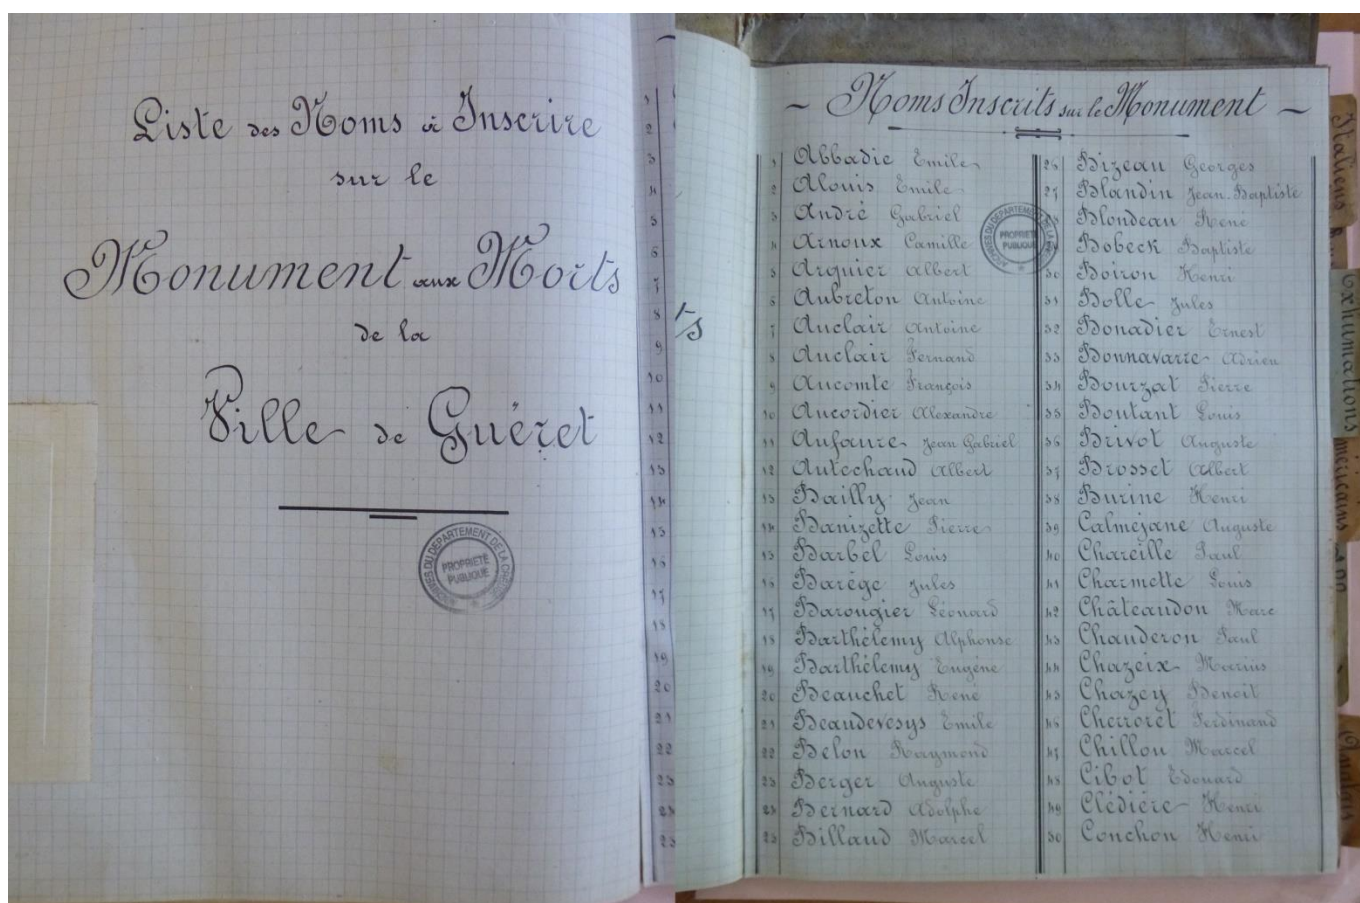 Liste des Noms à Inscrire
sur le
Monument aux Morts
de la
Ville de Guéret
ARCHIVES DU DEPARTEMENT DE LA CREUSE
PROPRIÉTÉ
PUBLIQUE
1
2
3
4
5
6
7
8
9
10
11
12
13
14
15
16
17
18
19
20
21
22
23
24
25
ts
Noms Inscrits sur le Monument
1 Abbadie Emile
2 Alouis Emile
3 André Gabriel
4 Arnoux Camille
5 Arquier Albert
6 Aubreton Antoine
7 Auclair Antoine
8 Auclair Fernand
9 Aucomte François
10 Aucordier Alexandre
11 Aufaure Jean Gabriel
12 Autechaud Albert
13 Bailly Jean
14 Banizette Pierre
15 Barbel Louis
16 Barége Jules
17 Barougier Léonard
18 Barthélemy Alphonse
19 Barthélemy Eugène
20 Beauchet René
21 Beaudevesys Emile
22 Belon Raymond
23 Berger Auguste
24 Bernard Adolphe
25 Billaud Marcel
26 Bizeau Georges
27 Blandin Jean-Baptiste
28 Blondeau René
Bobeck Baptiste
30 Boiron Henri
31 Bolle Jules
32 Bonadier Ernest
33 Bonnavarre Adrien
34 Bourzat Pierre
35 Boutant Louis
36 Brivot Auguste
37 Brosset Albert
38 Burine Henri
39 Calméjane Auguste
40 Chareille Paul
41 Charmette Louis
42 Châteaudon Marc
43 Chauderon Paul
44 Chazeix Marius
45 Chazey Benoit
46 Cherroret Ferdinand
47 Chillou Marcel
48 Cibot Edouard
49 Clédière Henri
50 Conchon Henri
PROPRIÉTÉ
PUBLIQUE
Italiens
Exhumations
Américains